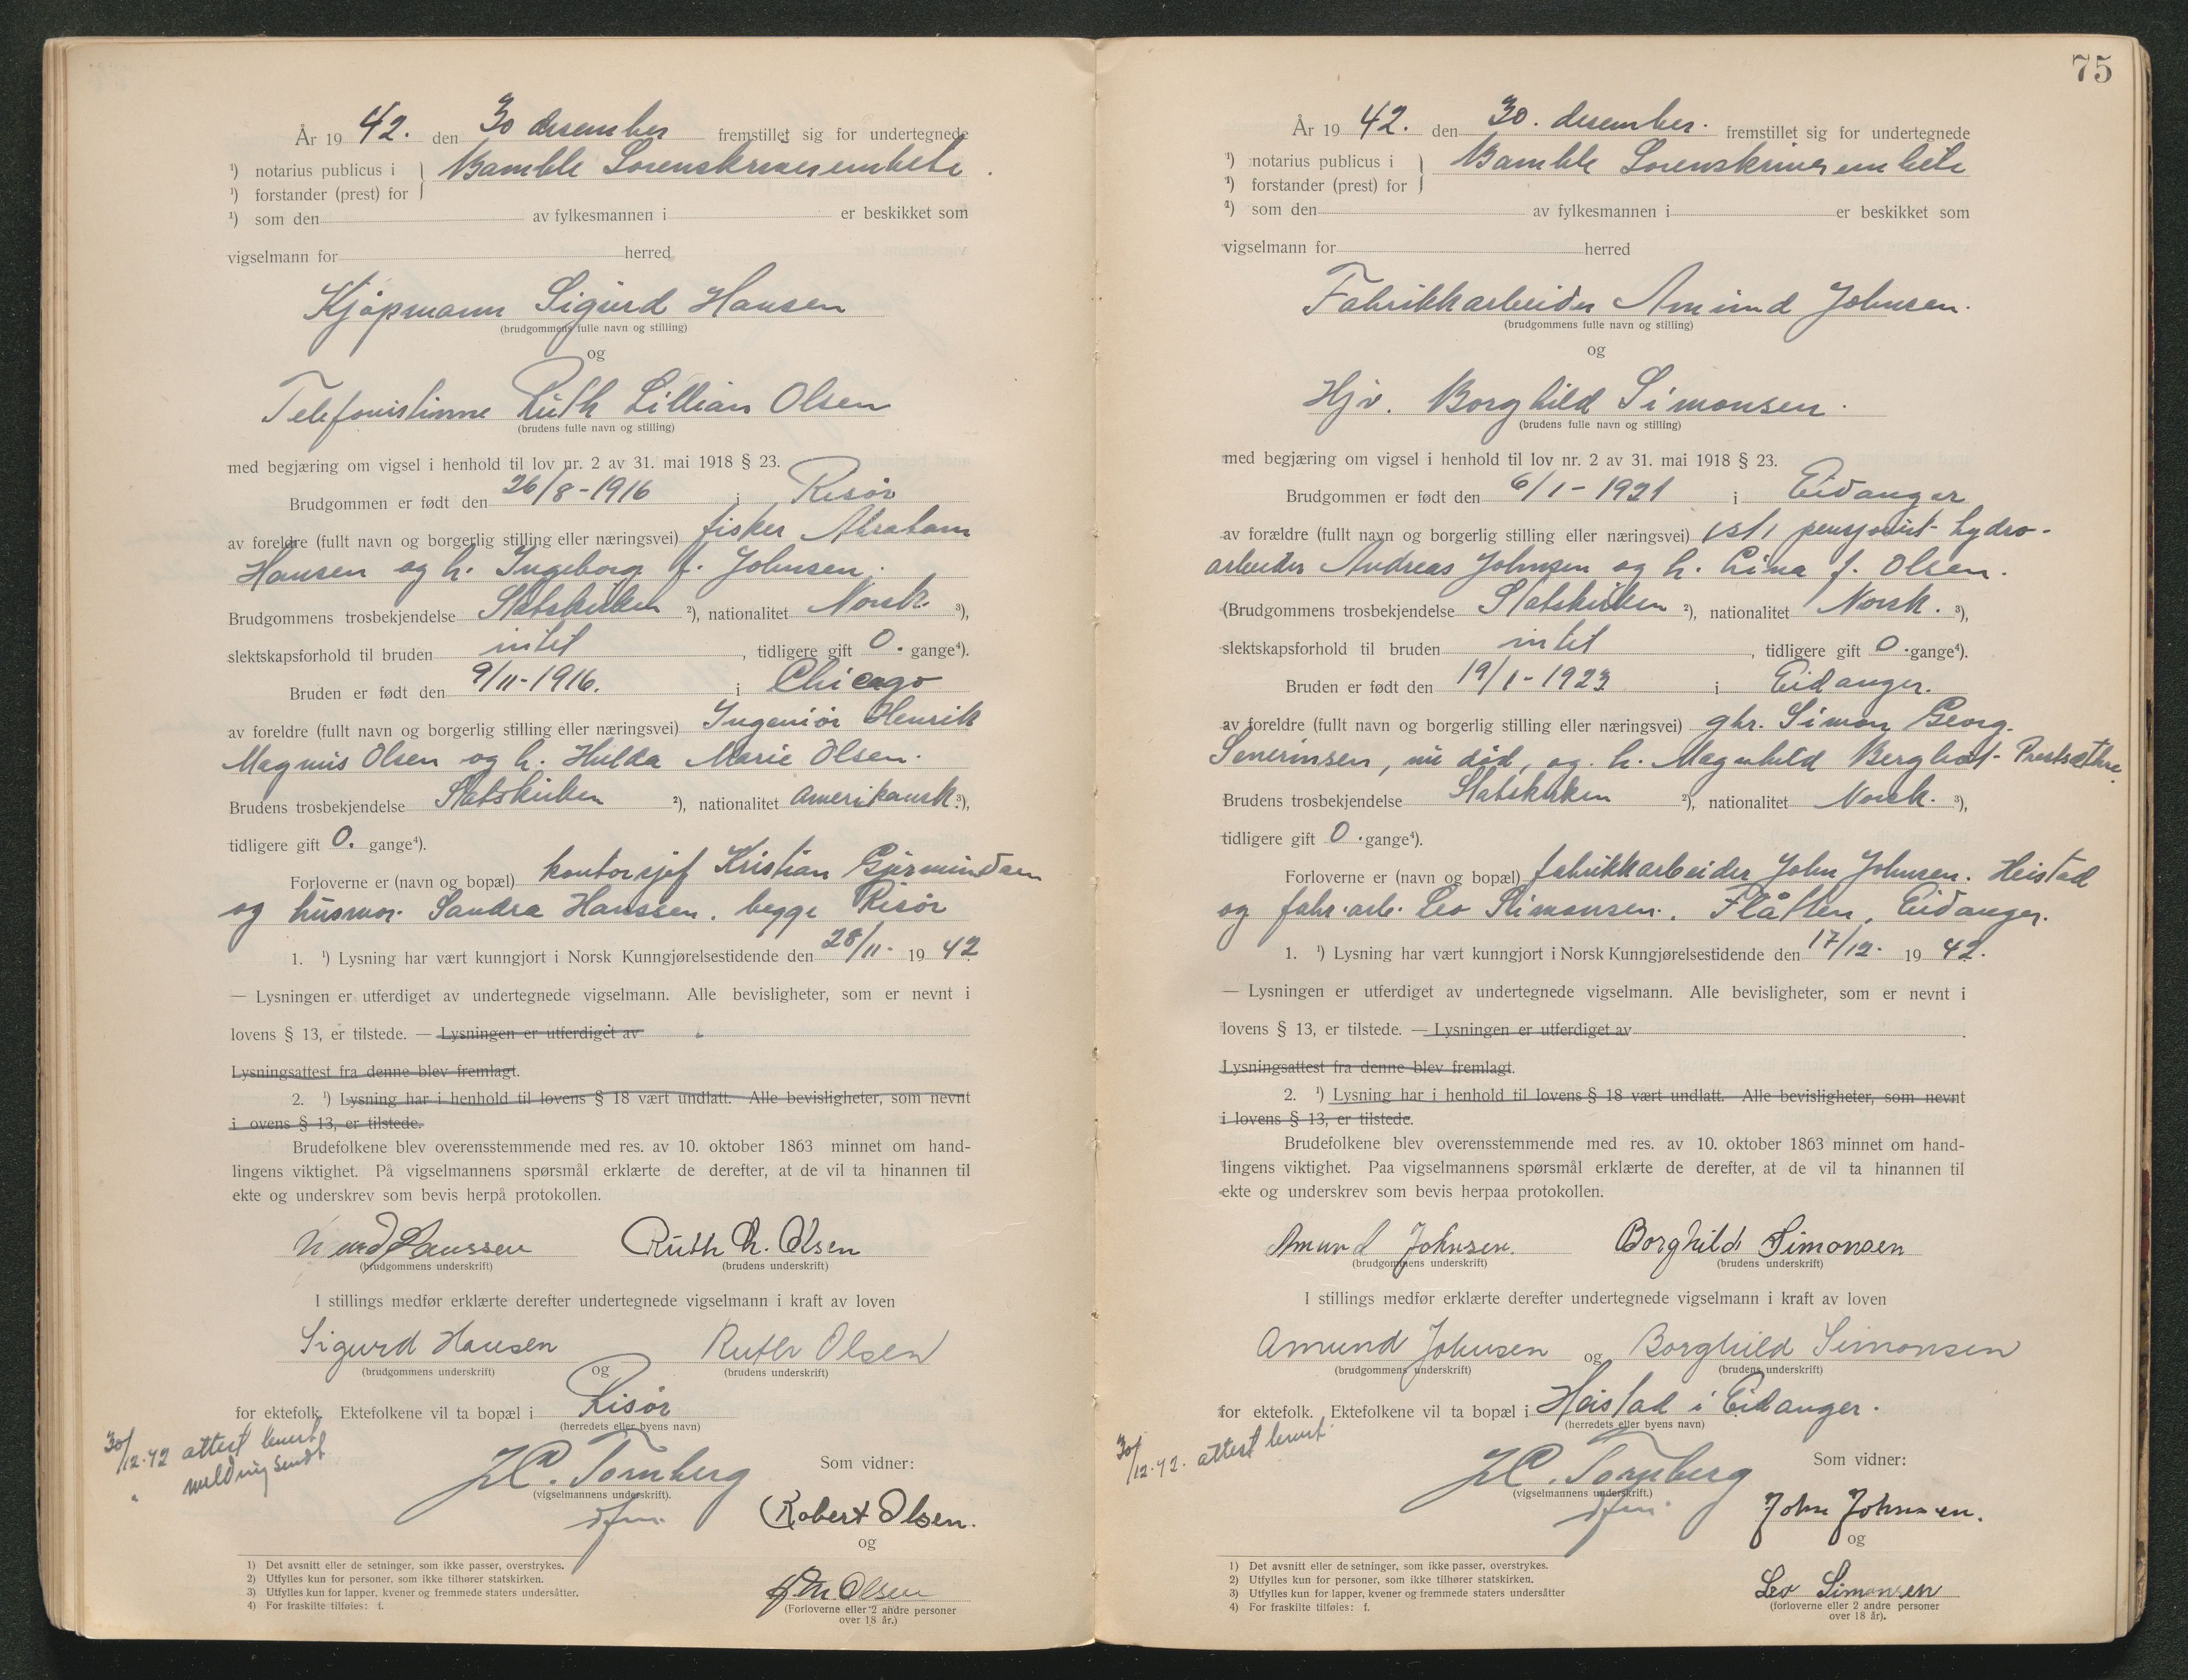 År 19 42. den 30 desember fremstillet sig for undertegnede
¹) notarius publicus i } Bamble Sorenskriverembete.
¹) forstander (prest) for
¹) som den av fylkesmannen i er beskikket som
vigselmann for herred
Kjøpmann Sigurd Hansen
(brudgommens fulle navn og stilling)
og
Telefonistinne Ruth Lillian Olsen
(brudens fulle navn og stilling)
med begjæring om vigsel i henhold til lov nr. 2 av 31. mai 1918 § 23.
Brudgommen er født den 26/8-1916 i Risør
av foreldre (fullt navn og borgerlig stilling eller næringsvei) fisker Abraham
Hansen og h. Ingeborg f. Johnsen.
Brudgommens trosbekjendelse Statskirken ²), nationalitet Norsk. ³),
slektskapsforhold til bruden intet, tidligere gift 0. gange⁴).
Bruden er født den 9/11-1916. i Chicago
av foreldre (fullt navn og borgerlig stilling eller næringsvei) Ingeniør Henrik
Magnus Olsen og h. Hulda Marie Olsen.
Brudens trosbekjendelse Statskirken ²), nationalitet amerikansk ³),
tidligere gift 0. gange⁴).
Forloverne er (navn og bopæl) kontorsjef Kristian Gjermundsen
og husmor Sandra Hanssen. begge Risør
1. ¹) Lysning har vært kunngjort i Norsk Kunngjørelsestidende den 28/11- 19 42
— Lysningen er utferdiget av undertegnede vigselmann. Alle bevisligheter, som er nevnt i
lovens § 13, er tilstede. — Lysningen er utferdiget av
Lysningsattest fra denne blev fremlagt.
2. ¹) Lysning har i henhold til lovens § 18 vært undlatt. Alle bevisligheter, som nevnt
i ovens § 13, er tilstede.
Brudefolkene blev overensstemmende med res. av 10. oktober 1863 minnet om hand-
lingens viktighet. På vigselmannens spørsmål erklærte de derefter, at de vil ta hinannen til
ekte og underskrev som bevis herpå protokollen.
Hanssen Ruth L. Olsen
(brudgommens underskrift) (brudens underskrift)
I stillings medfør erklærte derefter undertegnede vigselmann i kraft av loven
Sigurd Hansen og Ruth Olsen
(brudgommens underskrift) (brudens underskrift)
for ektefolk. Ektefolkene vil ta bopæl i Risør
(herredets eller byens navn)
30/12-42 attest levert
" melding sendt
Tornberg
(vigselmannens underskrift).
Som vidner:
Robert Olsen.
og
Olsen
(Forloverne eller 2 andre personer
over 18 år.)
1) Det avsnitt eller de setninger, som ikke passer, overstrykes.
2) Utfylles kun for personer, som ikke tilhører statskirken.
3) Utfylles kun for lapper, kvener og fremmede staters undersåtter.
4) For fraskilte tilføies: f.
75
År 19 42. den 30. desember. fremstillet sig for undertegnede
¹) notarius publicus i } Bamble Sorenskriverembete
¹) forstander (prest) for
¹) som den av fylkesmannen i er beskikket som
vigselmann for herred
Fabrikkarbeider Amund Johnsen.
(brudgommens fulle navn og stilling)
og
Hjv. Borghild Simonsen.
(brudens fulle navn og stilling)
med begjæring om vigsel i henhold til lov nr. 2 av 31. mai 1918 § 23.
Brudgommen er født den 6/1-1921 i Eidanger
av forældre (fullt navn og borgerlig stilling eller næringsvei) pensjonist hydro-
arbeider Andreas Johnsen og h. Lina f. Olsen.
(Brudgommens trosbekjendelse Statskirken ²), nationalitet Norsk. ³),
slektskapsforhold til bruden intet, tidligere gift 0. gange⁴).
Bruden er født den 19/1-1923 i Eidanger.
av foreldre (fullt navn og borgerlig stilling eller næringsvei) gbr. Simon Georg
Severinsen, nu død, og h. Magnhild Bergliot Prestsæthre.
Brudens trosbekjendelse Statskirken ²), nationalitet Norsk. ³),
tidligere gift 0. gange⁴).
Forloverne er (navn og bopæl) fabrikkarbeider John Johnsen. Heistad
og fabr.arb. Leo Simonsen. Flåtten, Eidanger.
1. ¹) Lysning har vært kunngjort i Norsk Kunngjørelsestidende den 17/12- 19 42.
— Lysningen er utferdiget av undertegnede vigselmann. Alle bevisligheter, som er nevnt i
lovens § 13, er tilstede. — Lysningen er utferdiget av
Lysningsattest fra denne blev fremlagt.
2. ¹) Lysning har i henhold til lovens § 18 vært undlatt. Alle bevisligheter, som nevnt
i lovens § 13, er tilstede.
Brudefolkene blev overensstemmende med res. av 10. oktober 1863 minnet om hand-
lingens viktighet. Paa vigselmannens spørsmål erklærte de derefter, at de vil ta hinannen til
ekte og underskrev som bevis herpaa protokollen.
Amund Johnsen. Borghild Simonsen
(brudgommens underskrift) (brudens underskrift)
I stillings medfør erklærte derefter undertegnede vigselmann i kraft av loven
Amund Johnsen og Borghild Simonsen
(brudgommens underskrift) (brudens underskrift)
for ektefolk. Ektefolkene vil ta bopæl i Heistad i Eidanger.
(herredets eller byens navn)
30/12-42. attest levert
Tornberg
(vigselmannens underskrift.)
Som vidner:
John Johnsen.
og
Leo Simonsen
(forloverne eller 2 andre personer
over 18 år).
1) Det avsnitt eller de setninger, som ikke passer, overstrykes.
2) Utfylles kun for personer, som ikke tilhører statskirken.
3) Utfylles kun for lapper, kvener og fremmede staters undersåtter
4) For fraskilte tilføies: f.